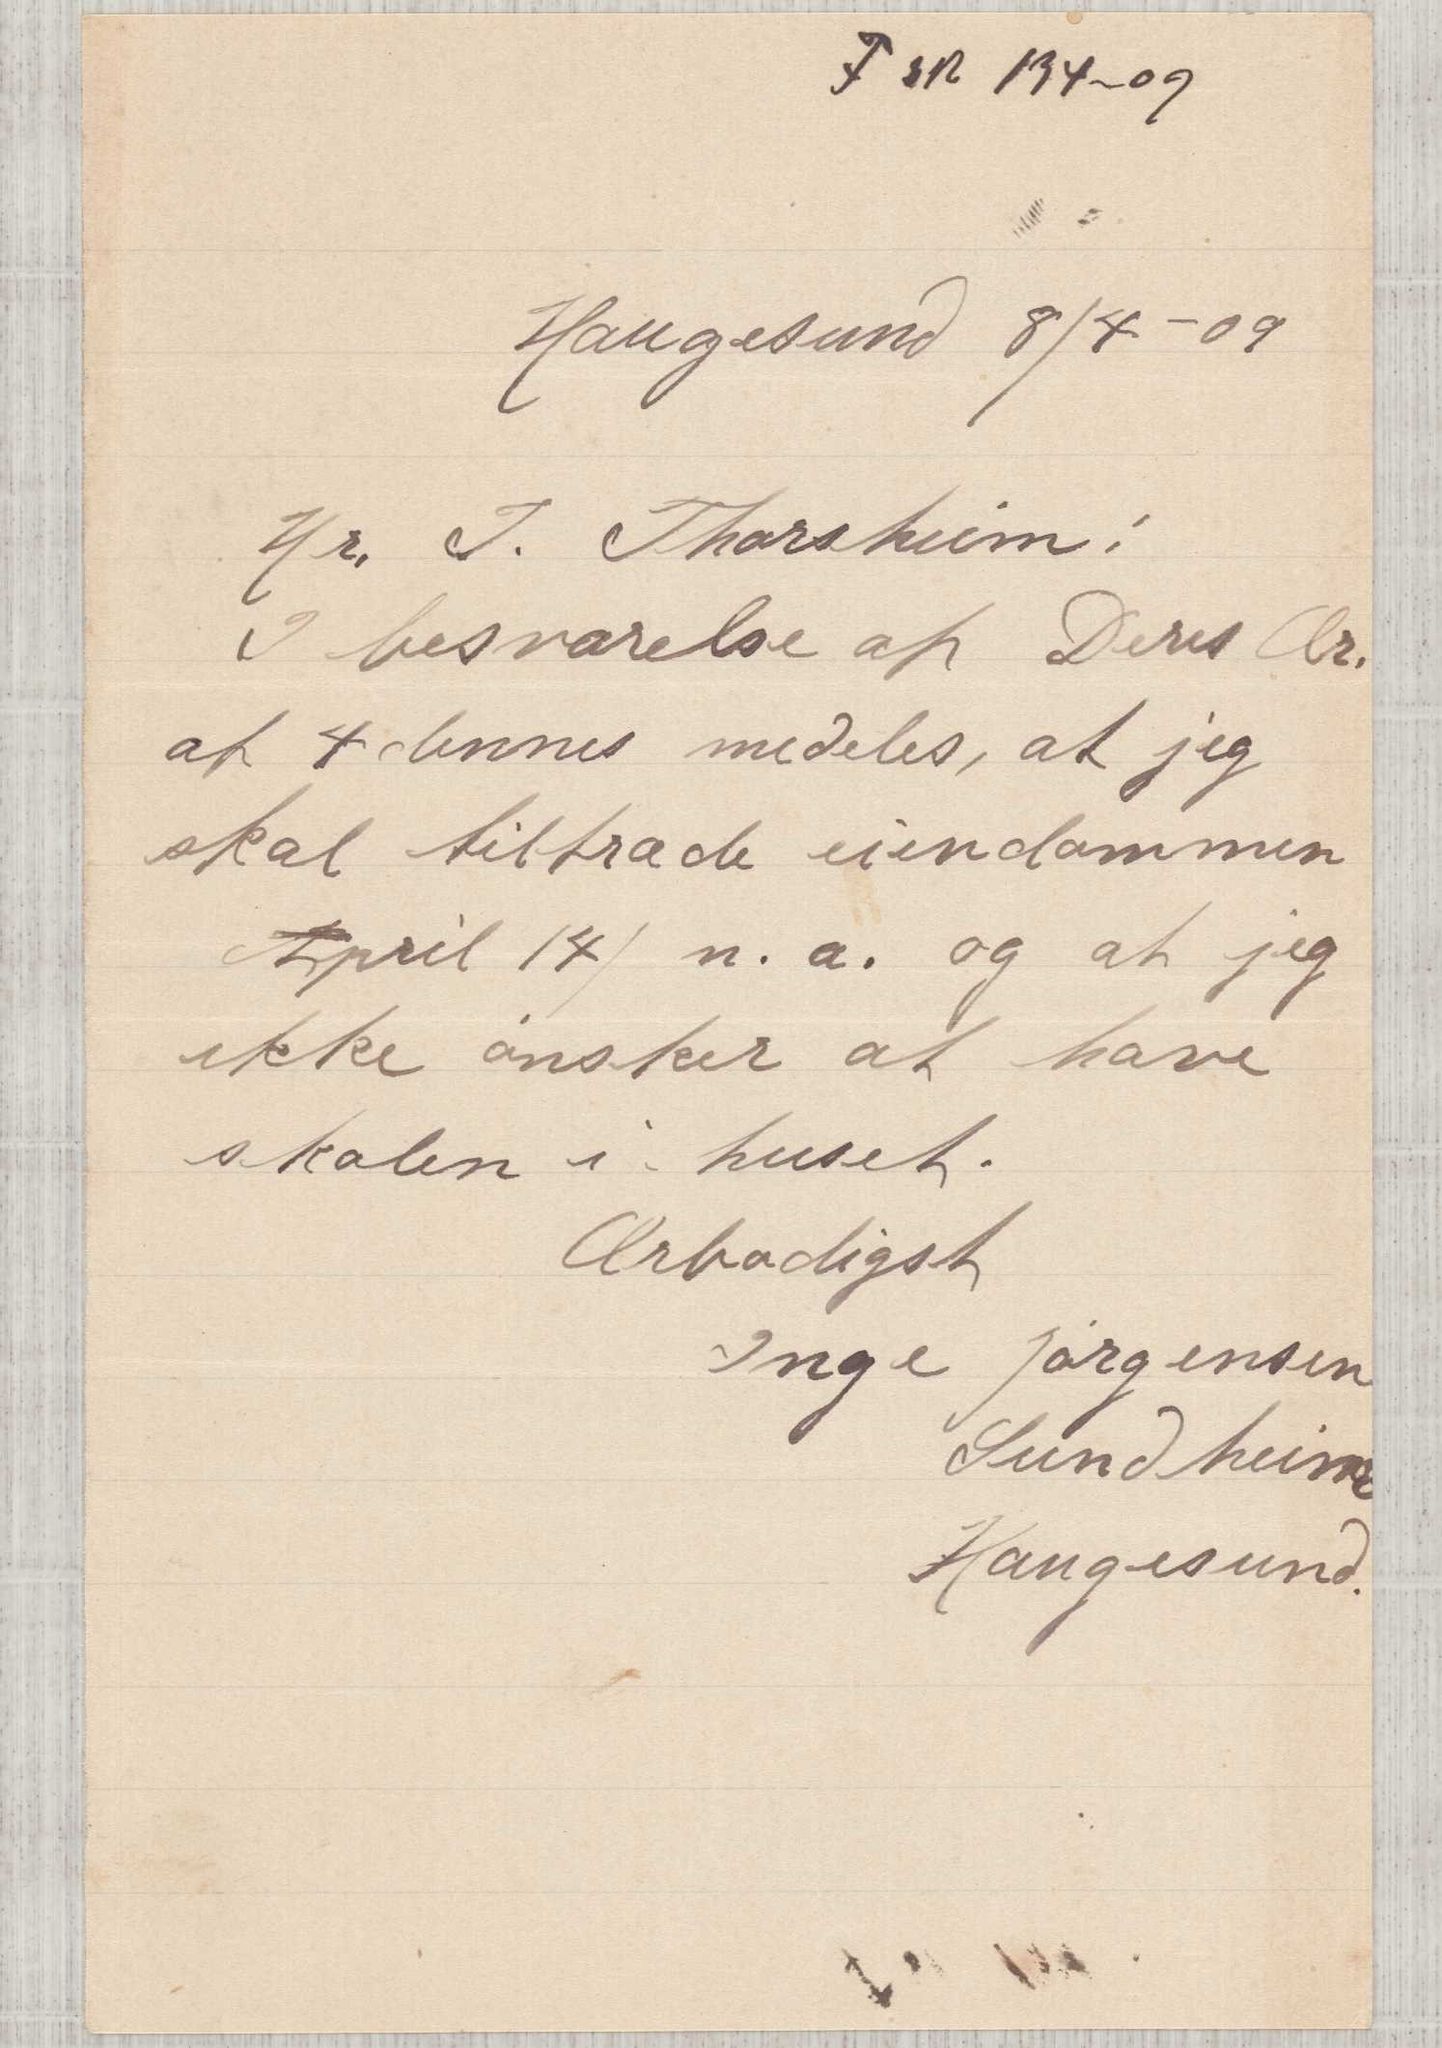 F SR 134-09
Haugesund 8/4-09
Hr. T. Thorsheim!
I besvarelse af Deres Ær.
af 4 dennes medeles, at jeg
skal tiltræde eiendommen
April 14/ n. a. og at jeg
ikke ønsker at have
skolen i huset.
Ærbødigst
Inge Jørgensen
Sundheim
Haugesund.